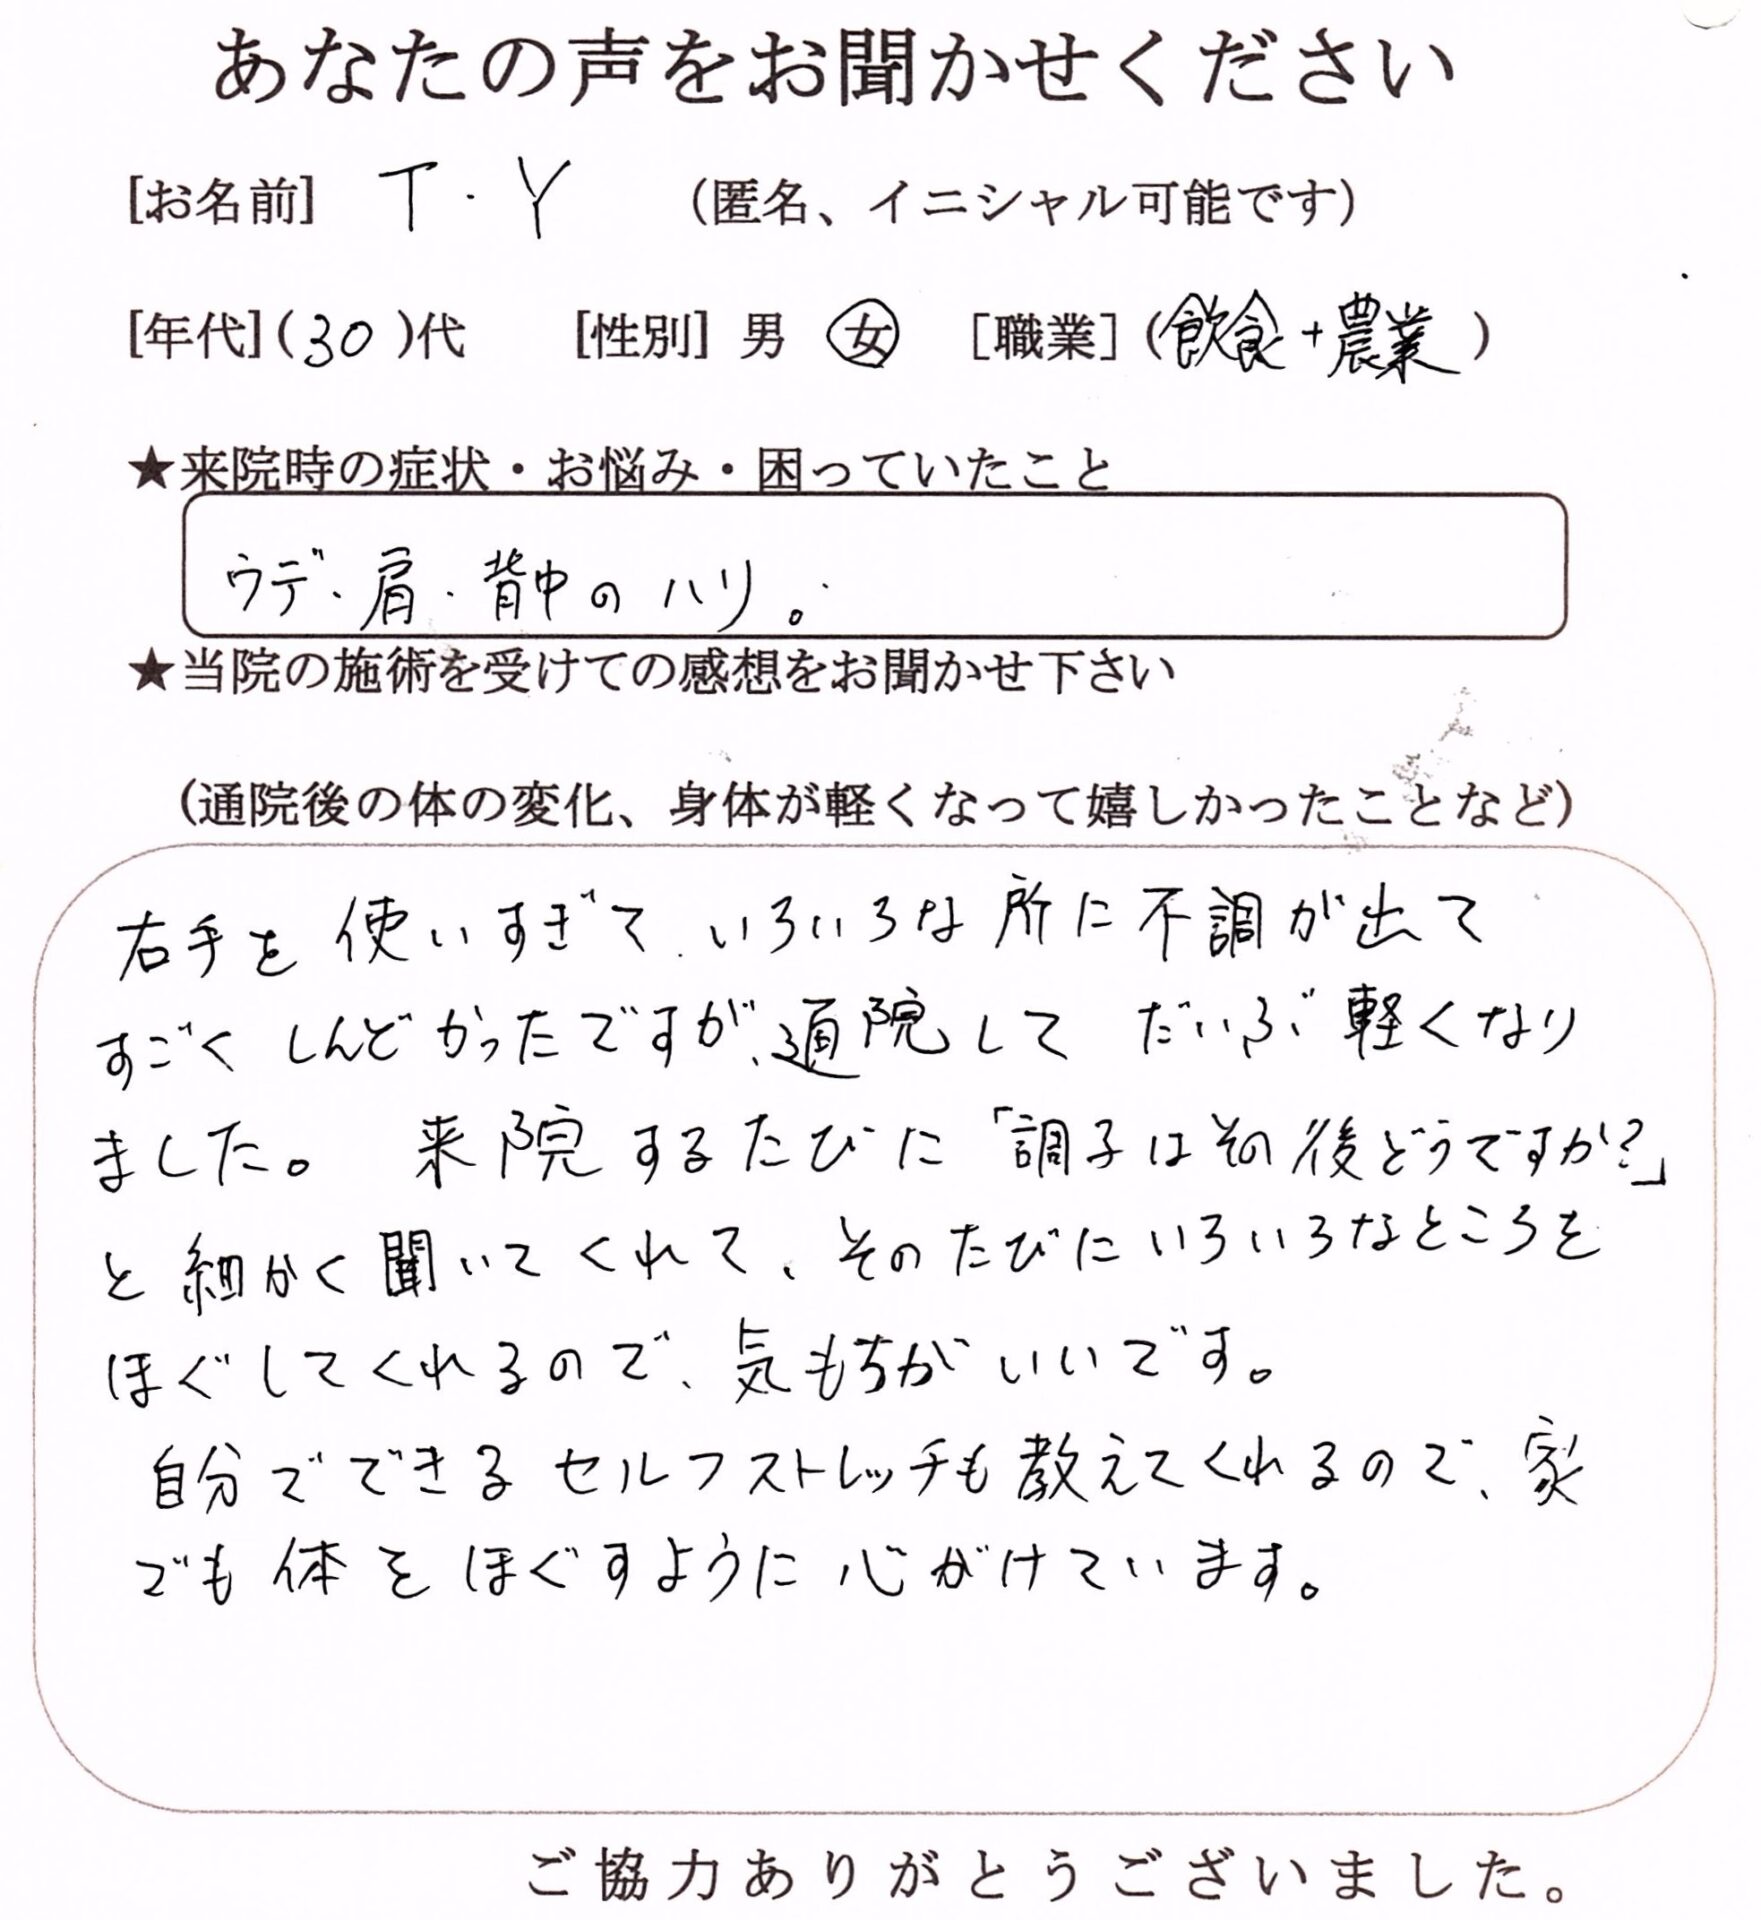 あなたの声をお聞かせください
[お名前] T・Y (匿名、イニシャル可能です)
[年代](30)代 [性別] 男 女 [職業](飲食+農業)
★来院時の症状・お悩み・困っていたこと
ウデ・肩・背中のハリ。
★当院の施術を受けての感想をお聞かせ下さい
(通院後の体の変化、身体が軽くなって嬉しかったことなど)
右手を使いすぎて、いろいろな所に不調が出て
すごくしんどかったですが、通院してだいぶ軽くなり
ました。 来院するたびに「調子はその後どうですか?」
と細かく聞いてくれて、そのたびにいろいろなところを
ほぐしてくれるので、気もちがいいです。
自分でできるセルフストレッチも教えてくれるので、家
でも体をほぐすように心がけています。
ご協力ありがとうございました。